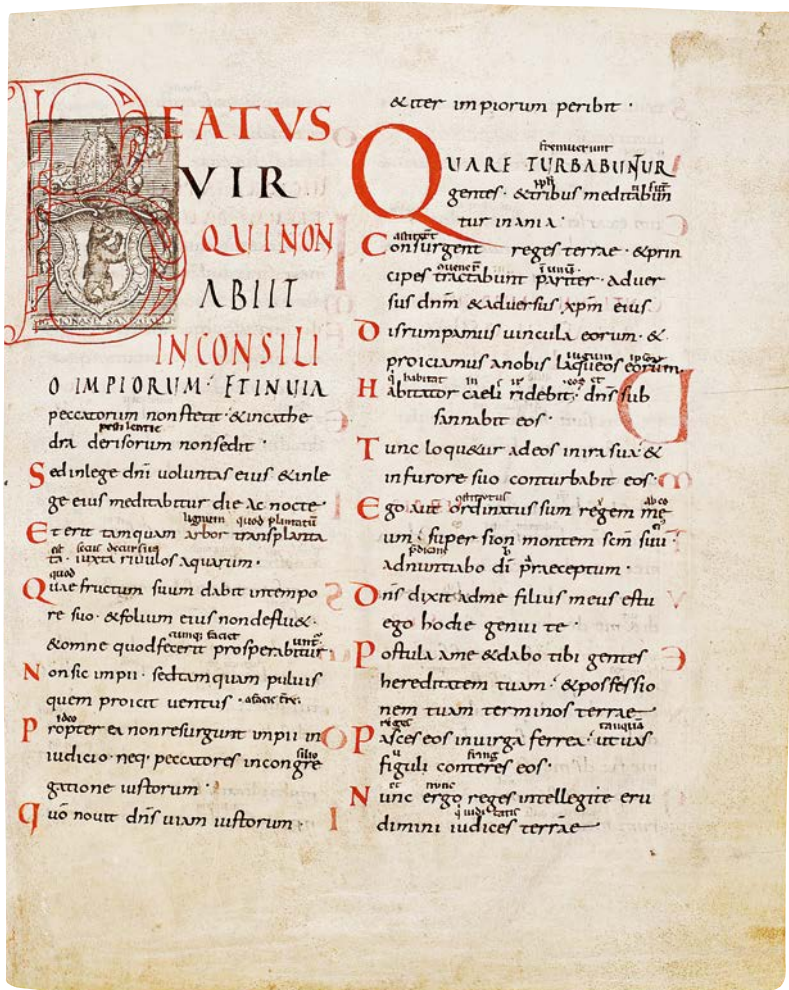 BEATUS
VIR
QUI NON
ABIIT
IN CONSILI
O IMPIORUM· ET IN UIA
peccatorum non stetit· & in cathe
pestilentie
dra derisorum non sedit·
Sed in lege dnī uoluntas eius & in le
ge eius meditabitur die ac nocte
lignum quod plantatū
Et erit tamquam arbor transplanta
est secus decursus
ta· iuxta riuulos aquarum·
quod
Quae fructum suum dabit in tempo
re suo· & folium eius non deflu&·
cumq; faciet unt
& omne quod fecerit prosperabitur·
Non sic impii· sed tamquam puluis
quem proicit uentus· a facie tre·
ideo
Propter ea non resurgunt impii in
iudicio· neq· peccatores in congre
silio
gatione iustorum·
Quō nouit dn̄s uiam iustorum·
& iter impiorum peribit·
fremuerunt
QUARE TURBABUNTUR
gentes· & tribus meditabun
tur inania·
Consurgent reges terrae· & prin
cipes tractabunt pariter· aduer
sus dnm̄ & aduersus xp̄m eius
Disrumpamus uincula eorum· &
iugum ipsoꝝ
proiciamus a nobis laqueos eorum·
q habitat in
Habitator caeli ridebit· dn̄s sub
sannabit eos·
Tunc loqu&ur ad eos in ira sua· &
in furore suo conturbabit eos·
ab eo
Ego autē ordinatus sum regem me
um· super sion montem scm̄ suū·
adnuntiabo dī praeceptum·
Dn̄s dixit ad me filius meus es tu
ego hodie genui te·
Postula a me & dabo tibi gentes
hereditatem tuam· & possessio
nem tuam terminos terrae
reges tamquā
Pasces eos in uirga ferrea· ut uas
fring
figuli conteres eos·
et nunc
Nunc ergo reges intellegite eru
q iudicatis
dimini iudices terrae